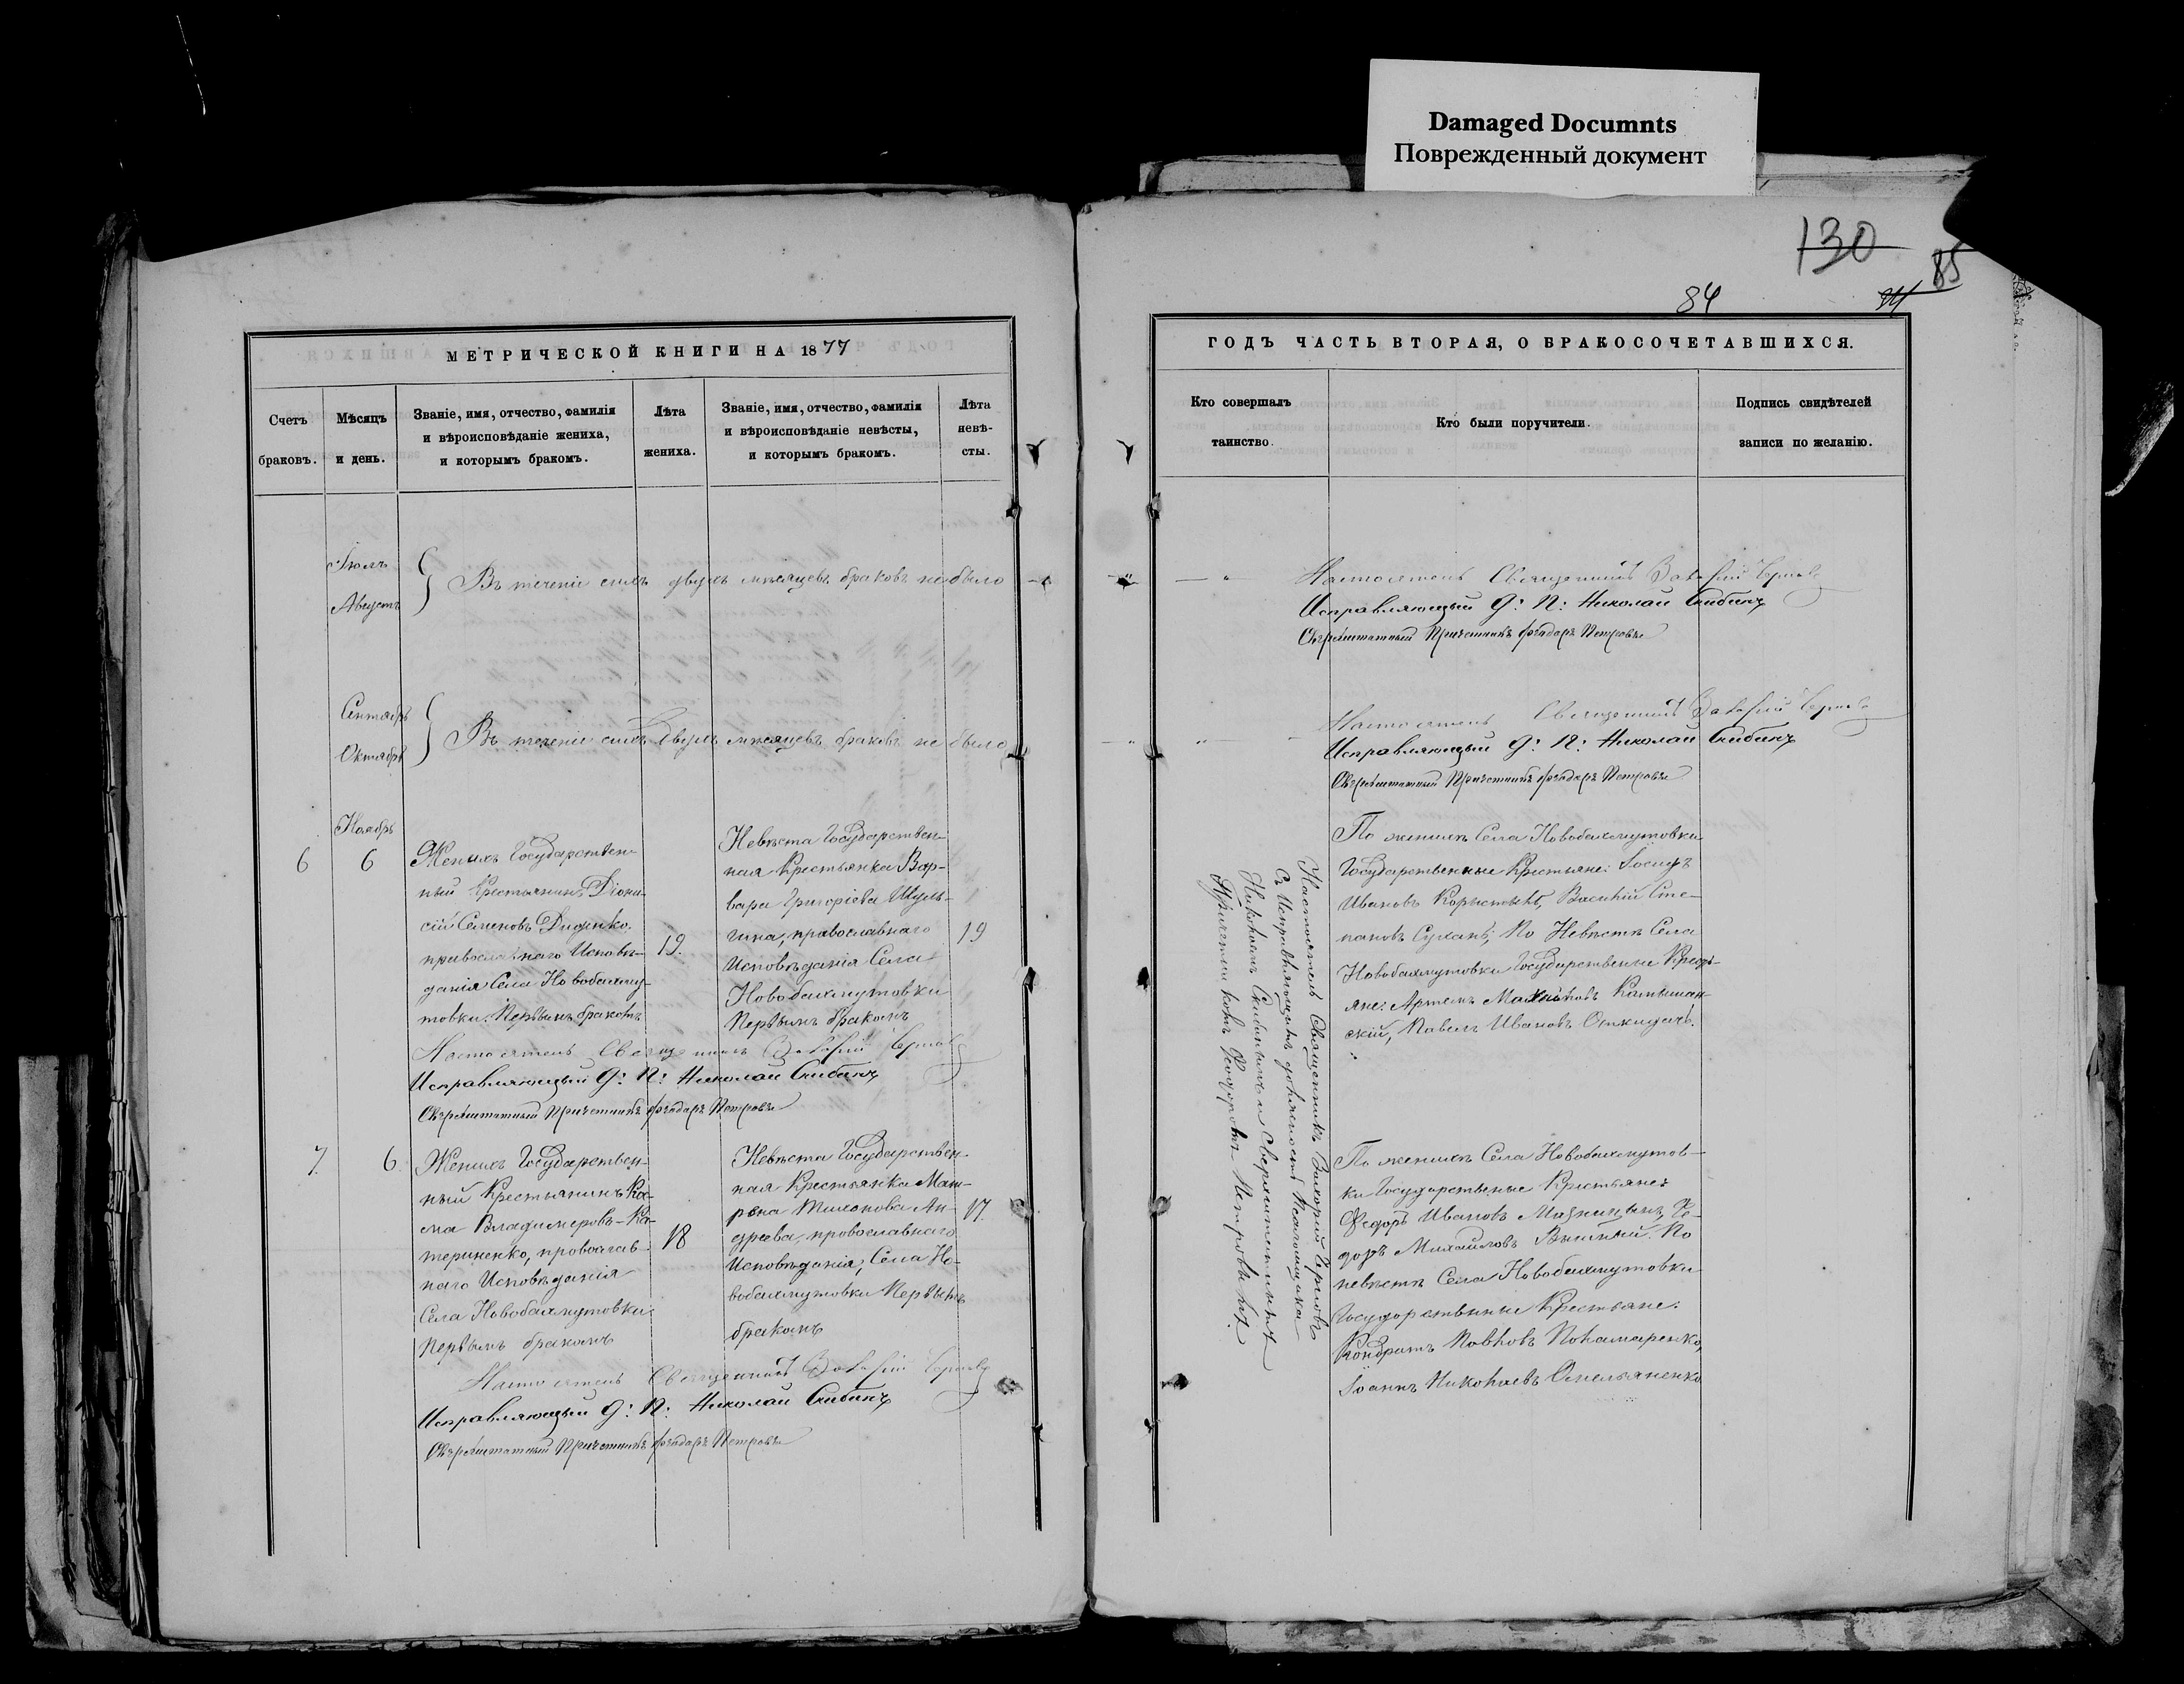 Damaged Documnts
Поврежденный документ
130
85
84
МЕТРИЧЕСКОЙ КНИГИ НА 1877
Счетъ браковъ.
Мѣсяцъ и день.
Званіе, имя, отчество, фамилія
и вѣроисповѣданіе жениха,
и которымъ бракомъ.
Лѣта жениха.
Званіе, имя, отчество, фамилія
и вѣроисповѣданіе невѣсты,
и которымъ бракомъ.
Лѣта
невѣ-
сты.
Іюль
Августъ
Въ теченіе сихъ двухъ мѣсяцевъ браковъ не было
Сентябрь
Октябрь
Въ теченіе сихъ двухъ мѣсяцевъ браковъ не было
Ноябрь
6
6
Женихъ Государствен-
ный Крестьянинъ Діони-
сій Семеновъ Диденко,
православнаго Исповѣ-
данія Села Новобахму-
товки. Первымъ бракомъ
19.
Невѣста Государствен-
ная Крестьянка Вар-
вара Григоріева Шуль-
гина, православнаго
Исповѣданія Села
Новобахмутовки
Первымъ бракомъ
19
Настоятель Священникъ Захарій Черновъ
Исправляющій Д: П: Николай Скибинъ
Сверхштатный Причетникъ Феодоръ Петровъ
7.
6.
Женихъ Государствен-
ный Крестьянинъ
Владимеровъ Ка-
териненко, православ-
наго Исповѣданія
Села Новобахмутовки
Первымъ бракомъ
18
Невѣста Государствен-
ная Крестьянка Мат-
рена Тихонова Ан-
дреева, православнаго
Исповѣданія, Села Но-
вобахмутовки Первымъ
бракомъ
17.
Настоятель Священникъ Захарій Черновъ
Исправляющій Д: П: Николай Скибинъ
Сверхштатный Причетникъ Феодоръ Петровъ
ГОДЪ ЧАСТЬ ВТОРАЯ, О БРАКОСОЧЕТАВШИХСЯ.
Кто совершалъ
таинство.
Кто были поручители.
Подпись свидѣтелей
записи по желанію.
Настоятель Священникъ Захарій Черновъ
Исправляющій Д: П: Николай Скибинъ
Сверхштатный Причетникъ Феодоръ Петровъ
Настоятель Священникъ Захарій Черновъ
Исправляющій Д: П: Николай Скибинъ
Сверхштатный Причетникъ Феодоръ Петровъ
Настоятель Священникъ Захорій Черновъ
Съ Исправляющимъ должность Псаломщика
Николаемъ Скибинымъ и Сверхштатнымъ
Причетникомъ Феодоромъ Петровымъ
По женихѣ Села Новобахмутовки
Государственные Крестьяне: Іосифъ
Ивановъ Василій Сте-
пановъ Сухань, По Невѣстѣ Села
Новобахмутовки Государственые Кресть-
яне: Артемъ Камышан-
скій, Павелъ Ивановъ Откидачъ.
По женихѣ Села Новобахмутов-
ки Государственые Крестьяне:
Федоръ Ивановъ Ѳе-
доръ Михайловъ По
невѣстѣ Села Новобахмутовки
Государственные Крестьяне:
Кондратъ Павловъ Понамаренко,
Іоаннъ Николаевъ Омельяненко